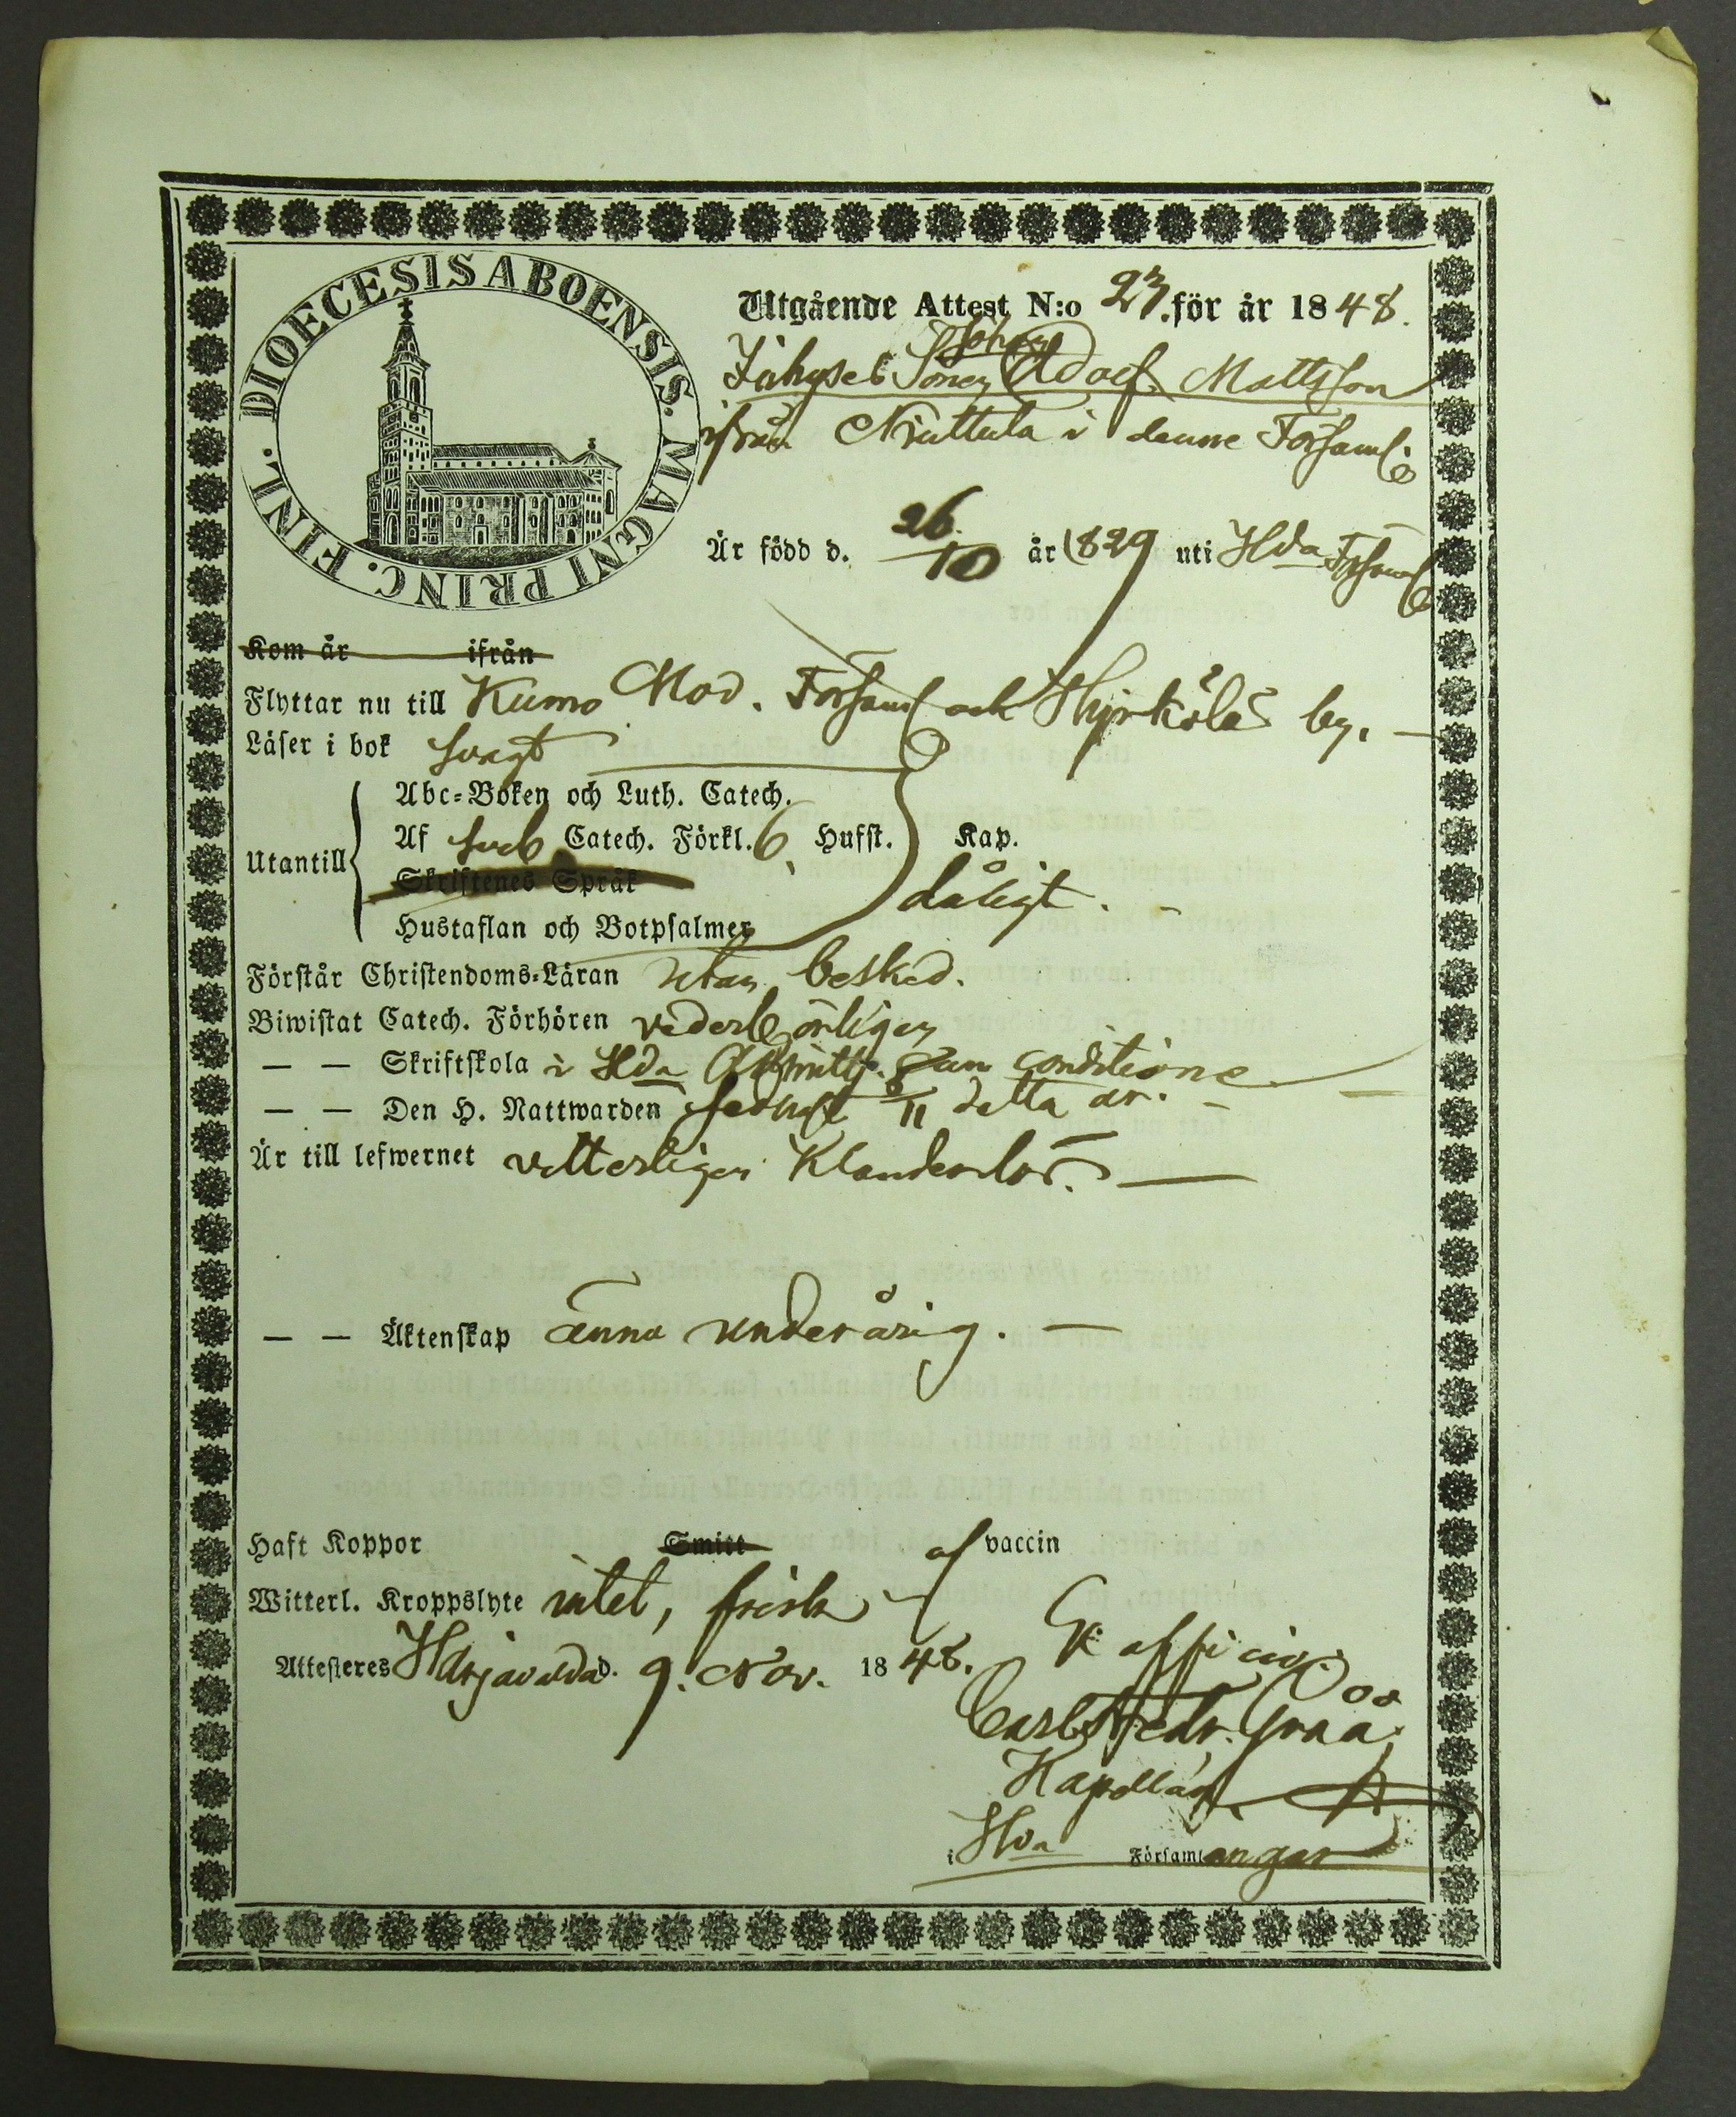 DIOECESIS ABOENSIS. MAGNI PRINC. FINL.
Utgående Attest N:o 23. för år 1848.
Johan
Inhyses Sonen Adolf Mattsson
ifrån Niuttula i denne Församl
Är född d. 26/10 år 1829 uti Hda Församl
Kom år ifrån
Flyttar nu till Kumo Mod. Församl och Hyrkölä by.
Läser i bok svagt
Utantill
Abc-Boken och Luth. Catech.
Af Sveb Catech. Förkl. 6 Hufst. Kap.
Skriftenes Språk
dåligt.
Hustaflan och Botpsalmer
Förstår Christendoms-Läran utan besked.
Biwistat Catech. Förhören vederbörligen
— — Skriftskola i Hda conditione
— — Den H. Nattwarden sednast /11 detta år.
Är till lefwernet vetterligen klanderlös.
— — Äktenskap ännu underårig.
Haft Koppor Smitt af vaccin
Witterl. Kroppslyte intet, frisk
Attesteres Harjavalda d. 9. Nov. 1848. Ex officio
Carl Fredr. Graå
Kapellan
i Hda Församlingar